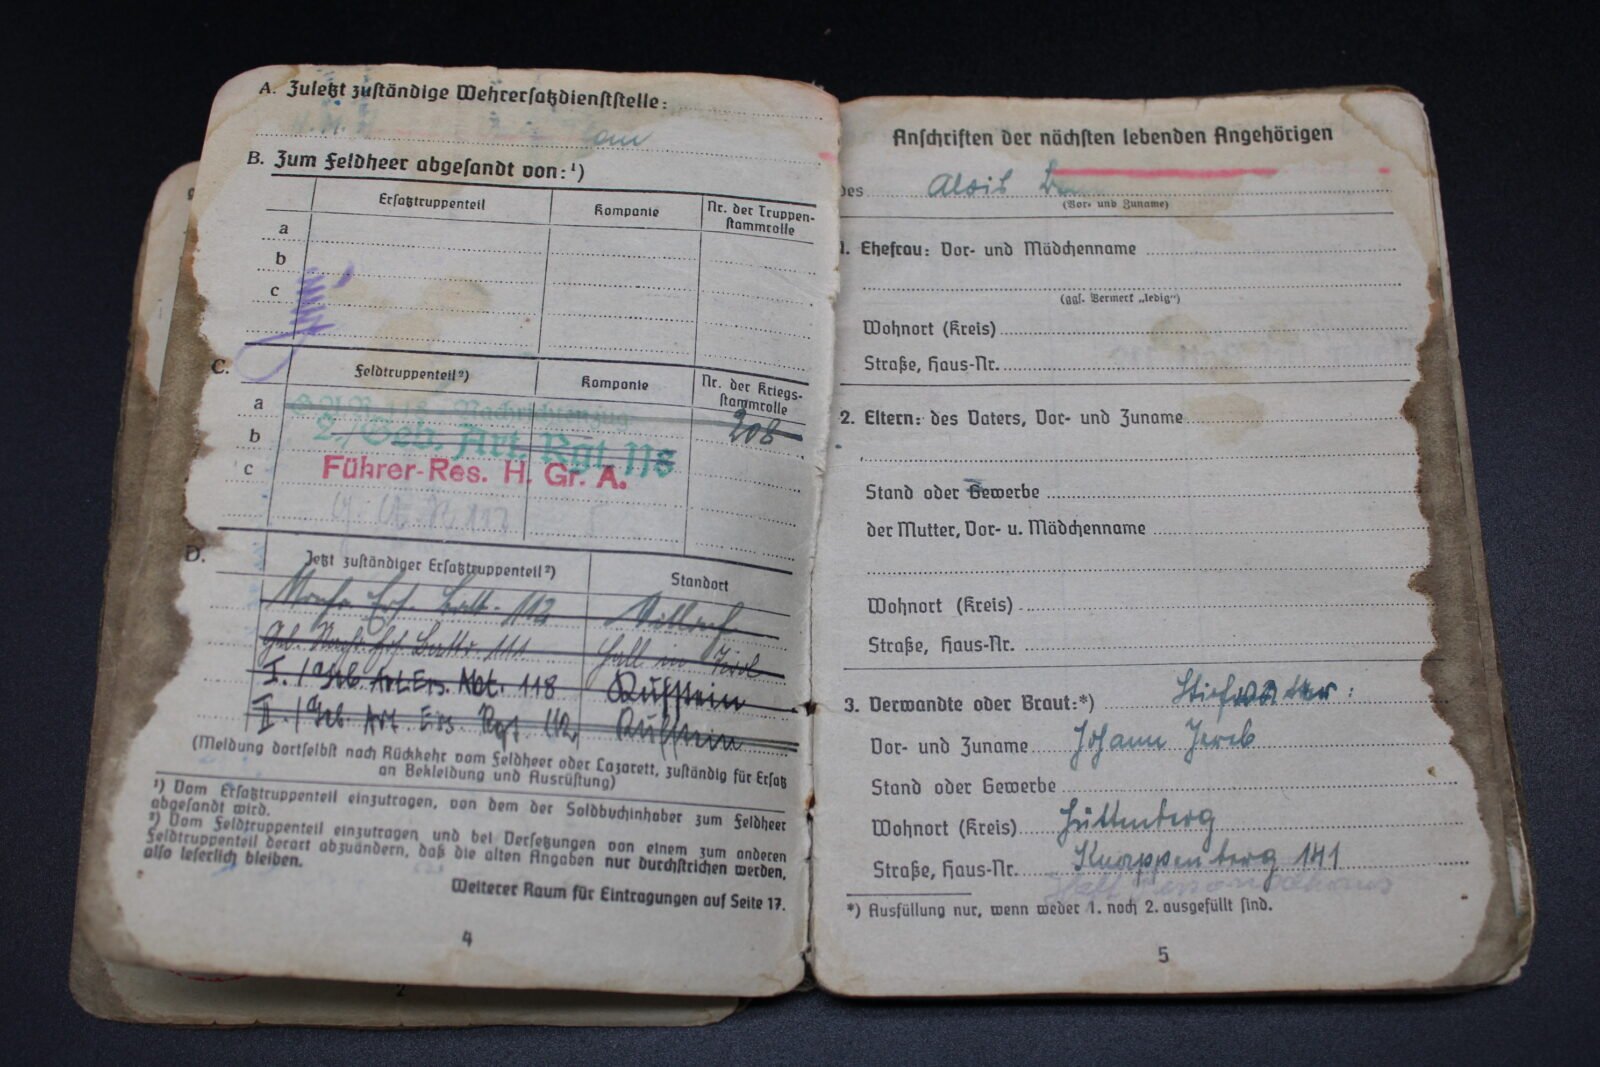 A. Zuletzt zuständige Wehrersatzdienststelle:
B. Zum Feldheer abgesandt von:¹)
Ersatztruppenteil
Kompanie
Nr. der Truppen-
stammrolle
a
b
c
C.
Feldtruppenteil²)
Kompanie
Nr. der Kriegs-
stammrolle
a
208
b
2./Geb. Art. Rgt. 118
c
Führer-Res. H. Gr. A.
D.
Jetzt zuständiger Ersatztruppenteil²)
Standort
112 Villach
Geb. 111 Hall in Tirol
I./Geb. Art. Ers. Abt. 118 Kufstein
II./Geb. Art. Ers. Rgt. 112 Kufstein
(Meldung dortselbst nach Rückkehr vom Feldheer oder Lazarett, zuständig für Ersatz
an Bekleidung und Ausrüstung)
¹) Vom Ersatztruppenteil einzutragen, von dem der Soldbuchinhaber zum Feldheer
abgesandt wird.
²) Vom Feldtruppenteil einzutragen und bei Versetzungen von einem zum anderen
Feldtruppenteil derart abzuändern, daß die alten Angaben nur durchstrichen werden,
also leserlich bleiben.
Weiterer Raum für Eintragungen auf Seite 17.
4
2
Anschriften der nächsten lebenden Angehörigen
des Alois
(Vor- und Zuname)
1. Ehefrau: Vor- und Mädchenname
(ggf. Vermerk „ledig")
Wohnort (Kreis)
Straße, Haus-Nr.
2. Eltern: des Vaters, Vor- und Zuname
Stand oder Gewerbe
der Mutter, Vor- u. Mädchenname
Wohnort (Kreis)
Straße, Haus-Nr.
3. Verwandte oder Braut:*) Stiefvater:
Vor- und Zuname Johann
Stand oder Gewerbe
Wohnort (Kreis) Hüttenberg
Straße, Haus-Nr. Knappenberg 141
*) Ausfüllung nur, wenn weder 1. noch 2. ausgefüllt sind.
5